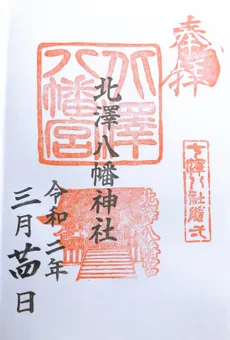 奉拝
七澤八社随弌
北澤
八幡宮
北澤八幡神社
北澤八幡宮
令和二年
三月廿四日